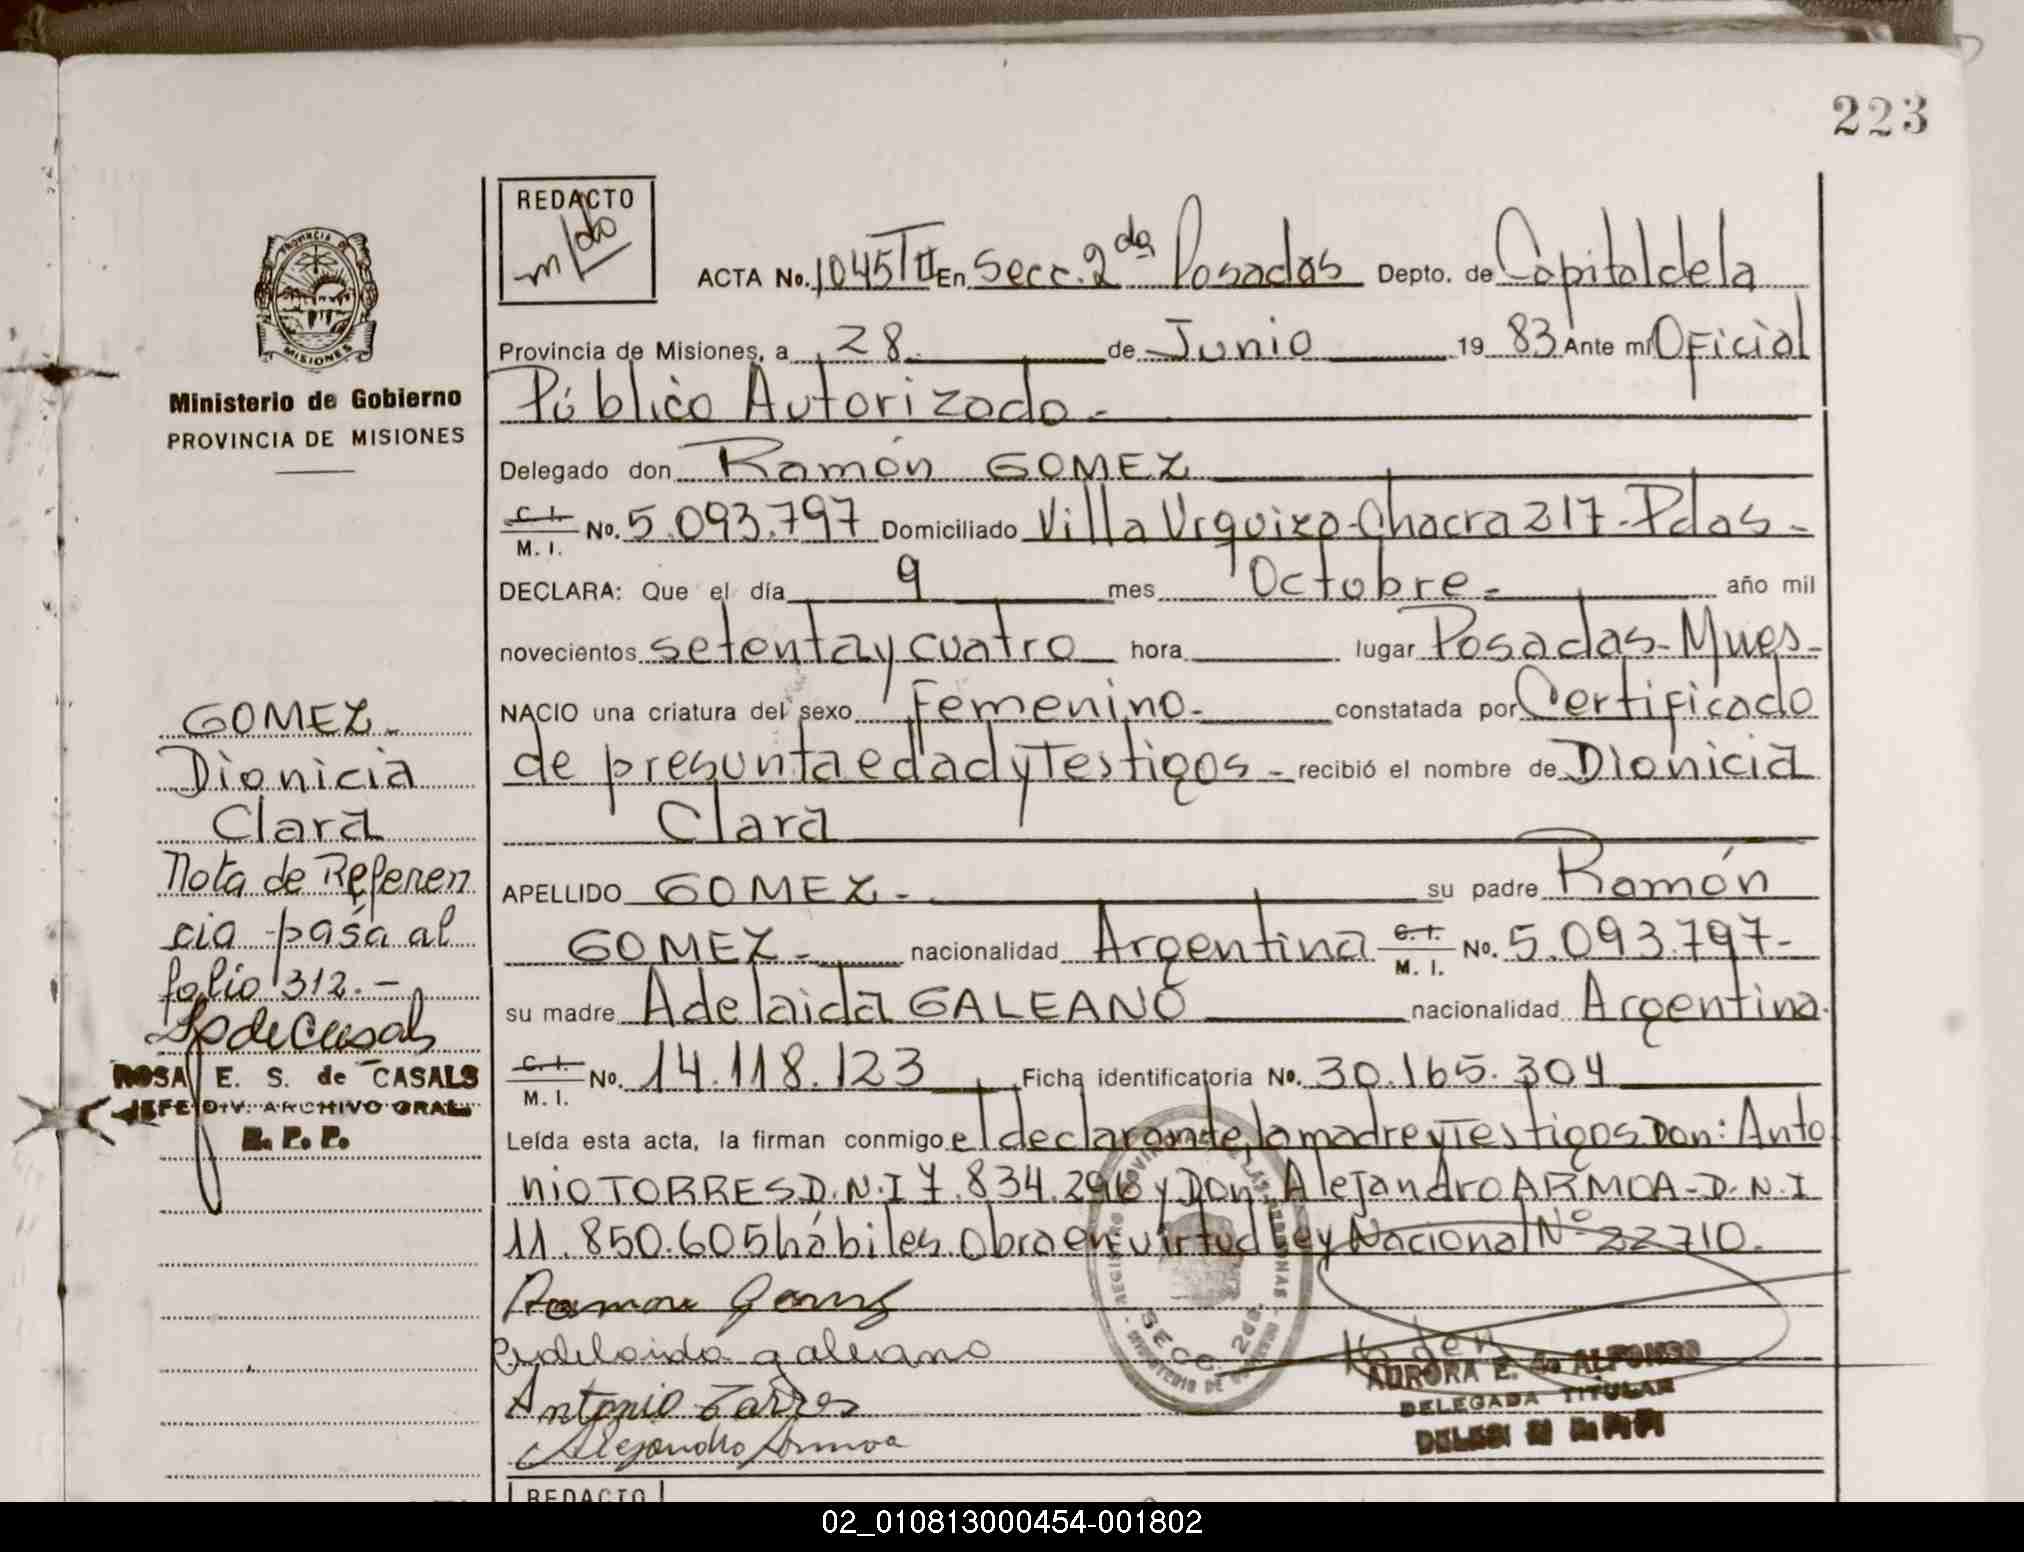 223
REDACTO
PROVINCIA DE
MISIONES
ACTA No. 1045 TII En Secc. 2da Posadas Depto. de Capital de la
Provincia de Misiones, a 28 de Junio 19 83 Ante mi Oficial
Público Autorizado.-
Ministerio de Gobierno
PROVINCIA DE MISIONES
Delegado don Ramón GOMEZ
C. I. M. I. No. 5.093.797 Domiciliado Villa Urquiza-Chacra 217-Pdas-
DECLARA: Que el día 9 mes Octobre.- año mil
novecientos setenta y cuatro hora lugar Posadas-Mnes-
NACIO una criatura del sexo Femenino.- constatada por Certificado
de presunta edad y Testigos - recibió el nombre de Dionicia
Clara
APELLIDO GOMEZ.- su padre Ramón
GOMEZ.- nacionalidad Argentina C. I. M. I. No. 5.093.797-
su madre Adelaida GALEANO nacionalidad Argentina.
C. I. M. I. No. 14.118.123 Ficha identificatoria No. 30.165.304
Leída esta acta, la firman conmigo el declarante, la madre y Testigos Don: Anto
nio TORRES D.N.I 7.834.296 y Don Alejandro ARMOA-D.N.I
11.850.605 hábiles. Obra en virtud Ley Nacional Nº 22710.
Ramon Gomez
Adelaida galeano
Antonio Torres
Alejandro Armoa
GOMEZ.-
Dionicia
Clara
Nota de Referen
cia pasa al
folio 312.-
ROSA E. S. de CASALS
JEFE DIV. ARCHIVO GRAL.
R. P. P.
SECC. 2da.
AURORA E. de ALFONSO
DELEGADA TITULAR
REDACTO
02_010813000454-001802